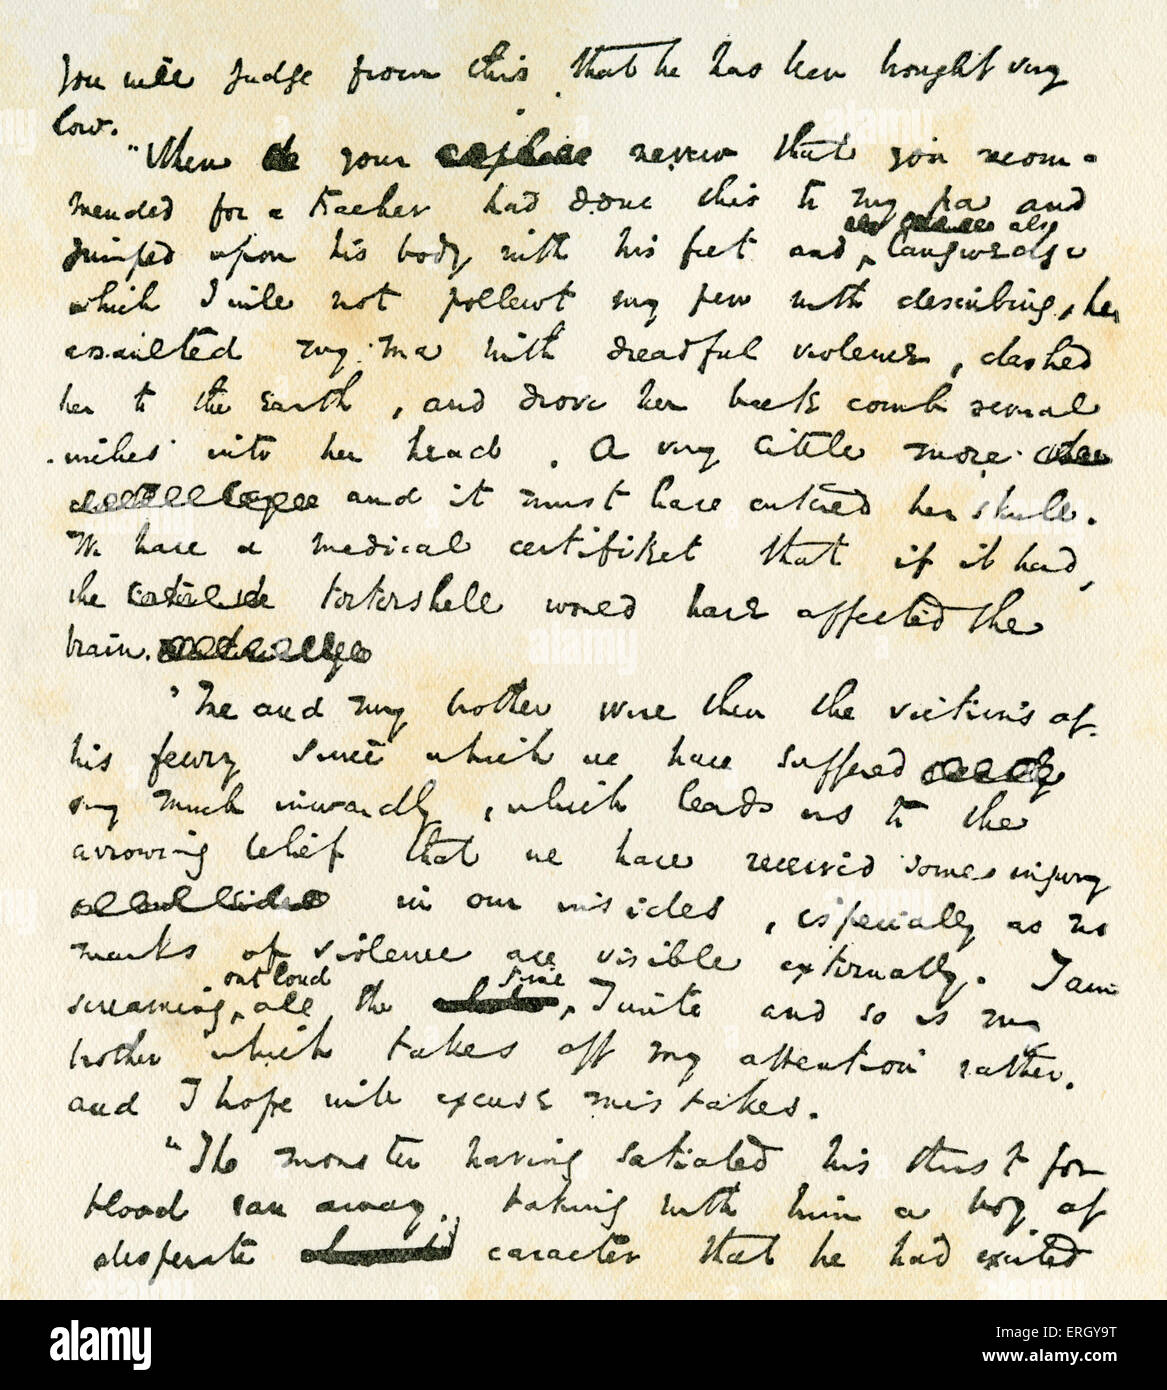 you will judge from this that he has been brought very
low.
"When your nevew that you recom-
mended for a teacher had done this to my pa and
jumped upon his body with his feet and also langwedge
which I will not pollewt my pen with describing, he
assailted my ma with dreadful violence, dashed
her to the earth, and drove her back comb several
inches into her head. A very little more
and it must have entered her skull.
We have a medical certifiket that if it had,
the tortershell would have affected the
brain.
"Me and my brother were then the victims of
his feury since which we have suffered
very much inwardly, which leads us to the
arrowing belief that we have received some injury
in our insides, especially as no
marks of violence are visible externally. I am
screaming out loud all the time I write and so is my
brother which takes off my attention rather.
and I hope will excuse mistakes.
"The monster having satiated his thirst for
blood ran away, taking with him a boy of
desperate caracter that he had exited
alamy
alamy
alamy
alamy
Image ID: ERGY9T
www.alamy.com